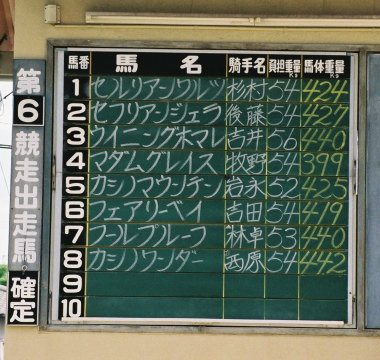 第6競走出走馬
確定
馬番 馬名 騎手名 負担重量Kg 馬体重量Kg
1 セントリアンワルツ 杉村 54 424
2 セフリアンジェラ 後藤 54 427
3 ウイニングホマレ 吉井 56 440
4 マダムグレイス 牧野 54 399
5 カシノマウンテン 岩永 52 425
6 フェアリーベイ 吉田 54 419
7 フールプルーフ 林卓 53 440
8 カシノワンダー 西原 54 442
9
10